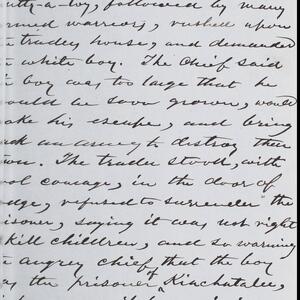 -a-boy, followed by many
armed warriors, rushed upon
trader's house, and demanded
white boy. The Chief said
boy was too large that he
would be soon grown, would
make his escape, and bring
back an army to destroy their
town. The trader stood, with
cool courage, in the door of
lodge, refused to surrender the
prisoner, saying it was not right
kill children, and so warning
angrey chief that the boy
was the prisoner of Kinchatalee,